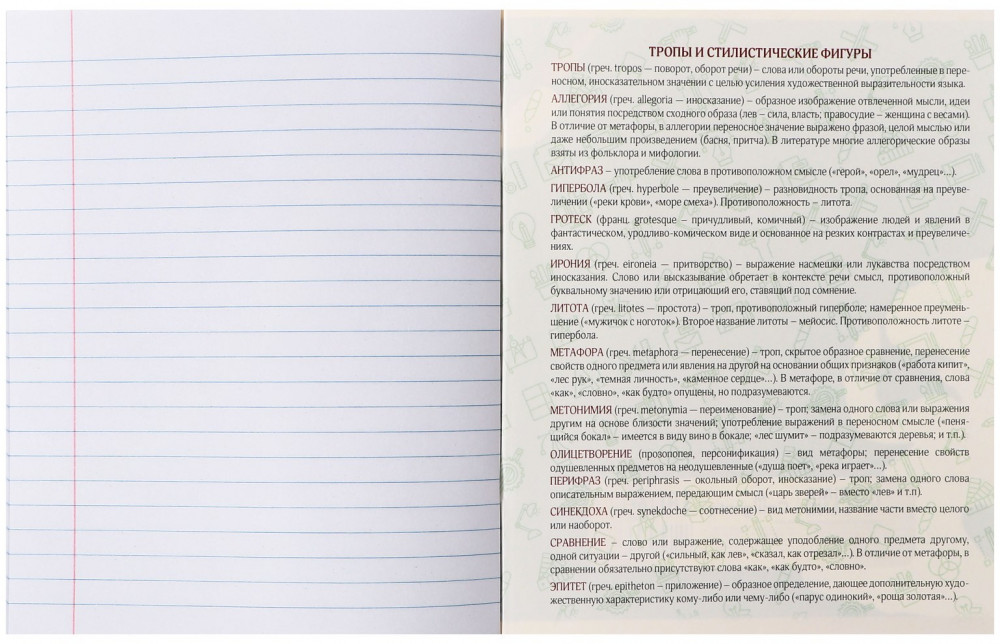 ТРОПЫ И СТИЛИСТИЧЕСКИЕ ФИГУРЫ
ТРОПЫ (греч. tropos — поворот, оборот речи) – слова или обороты речи, употребленные в пере-
носном, иносказательном значении с целью усиления художественной выразительности языка.
АЛЛЕГОРИЯ (греч. allegoria — иносказание) – образное изображение отвлеченной мысли, идеи
или понятия посредством сходного образа (лев – сила, власть; правосудие – женщина с весами).
В отличие от метафоры, в аллегории переносное значение выражено фразой, целой мыслью или
даже небольшим произведением (басня, притча). В литературе многие аллегорические образы
взяты из фольклора и мифологии.
АНТИФРАЗ – употребление слова в противоположном смысле («герой», «орел», «мудрец»...).
ГИПЕРБОЛА (греч. hyperbole — преувеличение) – разновидность тропа, основанная на преуве-
личении («реки крови», «море смеха»). Противоположность – литота.
ГРОТЕСК (франц. grotesque – причудливый, комичный) – изображение людей и явлений в
фантастическом, уродливо-комическом виде и основанное на резких контрастах и преувеличе-
ниях.
ИРОНИЯ (греч. eironeia — притворство) – выражение насмешки или лукавства посредством
иносказания. Слово или высказывание обретает в контексте речи смысл, противоположный
буквальному значению или отрицающий его, ставящий под сомнение.
ЛИТОТА (греч. litotes — простота) – троп, противоположный гиперболе; намеренное преумень-
шение («мужичок с ноготок»). Второе название литоты – мейосис. Противоположность литоте –
гипербола.
МЕТАФОРА (греч. metaphora — перенесение) – троп, скрытое образное сравнение, перенесение
свойств одного предмета или явления на другой на основании общих признаков («работа кипит»,
«лес рук», «темная личность», «каменное сердце»...). В метафоре, в отличие от сравнения, слова
«как», «словно», «как будто» опущены, но подразумеваются.
МЕТОНИМИЯ (греч. metonymia — переименование) – троп; замена одного слова или выражения
другим на основе близости значений; употребление выражений в переносном смысле («пеня-
щийся бокал» – имеется в виду вино в бокале; «лес шумит» – подразумеваются деревья; и т.п.).
ОЛИЦЕТВОРЕНИЕ (прозопопея, персонификация) – вид метафоры; перенесение свойств
одушевленных предметов на неодушевленные («душа поет», «река играет»...).
ПЕРИФРАЗ (греч. periphrasis — окольный оборот, иносказание) – троп; замена одного слова
описательным выражением, передающим смысл («царь зверей» – вместо «лев» и т.п).
СИНЕКДОХА (греч. synekdoche — соотнесение) – вид метонимии, название части вместо целого
или наоборот.
СРАВНЕНИЕ – слово или выражение, содержащее уподобление одного предмета другому,
одной ситуации – другой («сильный, как лев», «сказал, как отрезал»...). В отличие от метафоры, в
сравнении обязательно присутствуют слова «как», «как будто», «словно».
ЭПИТЕТ (греч. epitheton – приложение) – образное определение, дающее дополнительную худо-
жественную характеристику кому-либо или чему-либо («парус одинокий», «роща золотая»...).